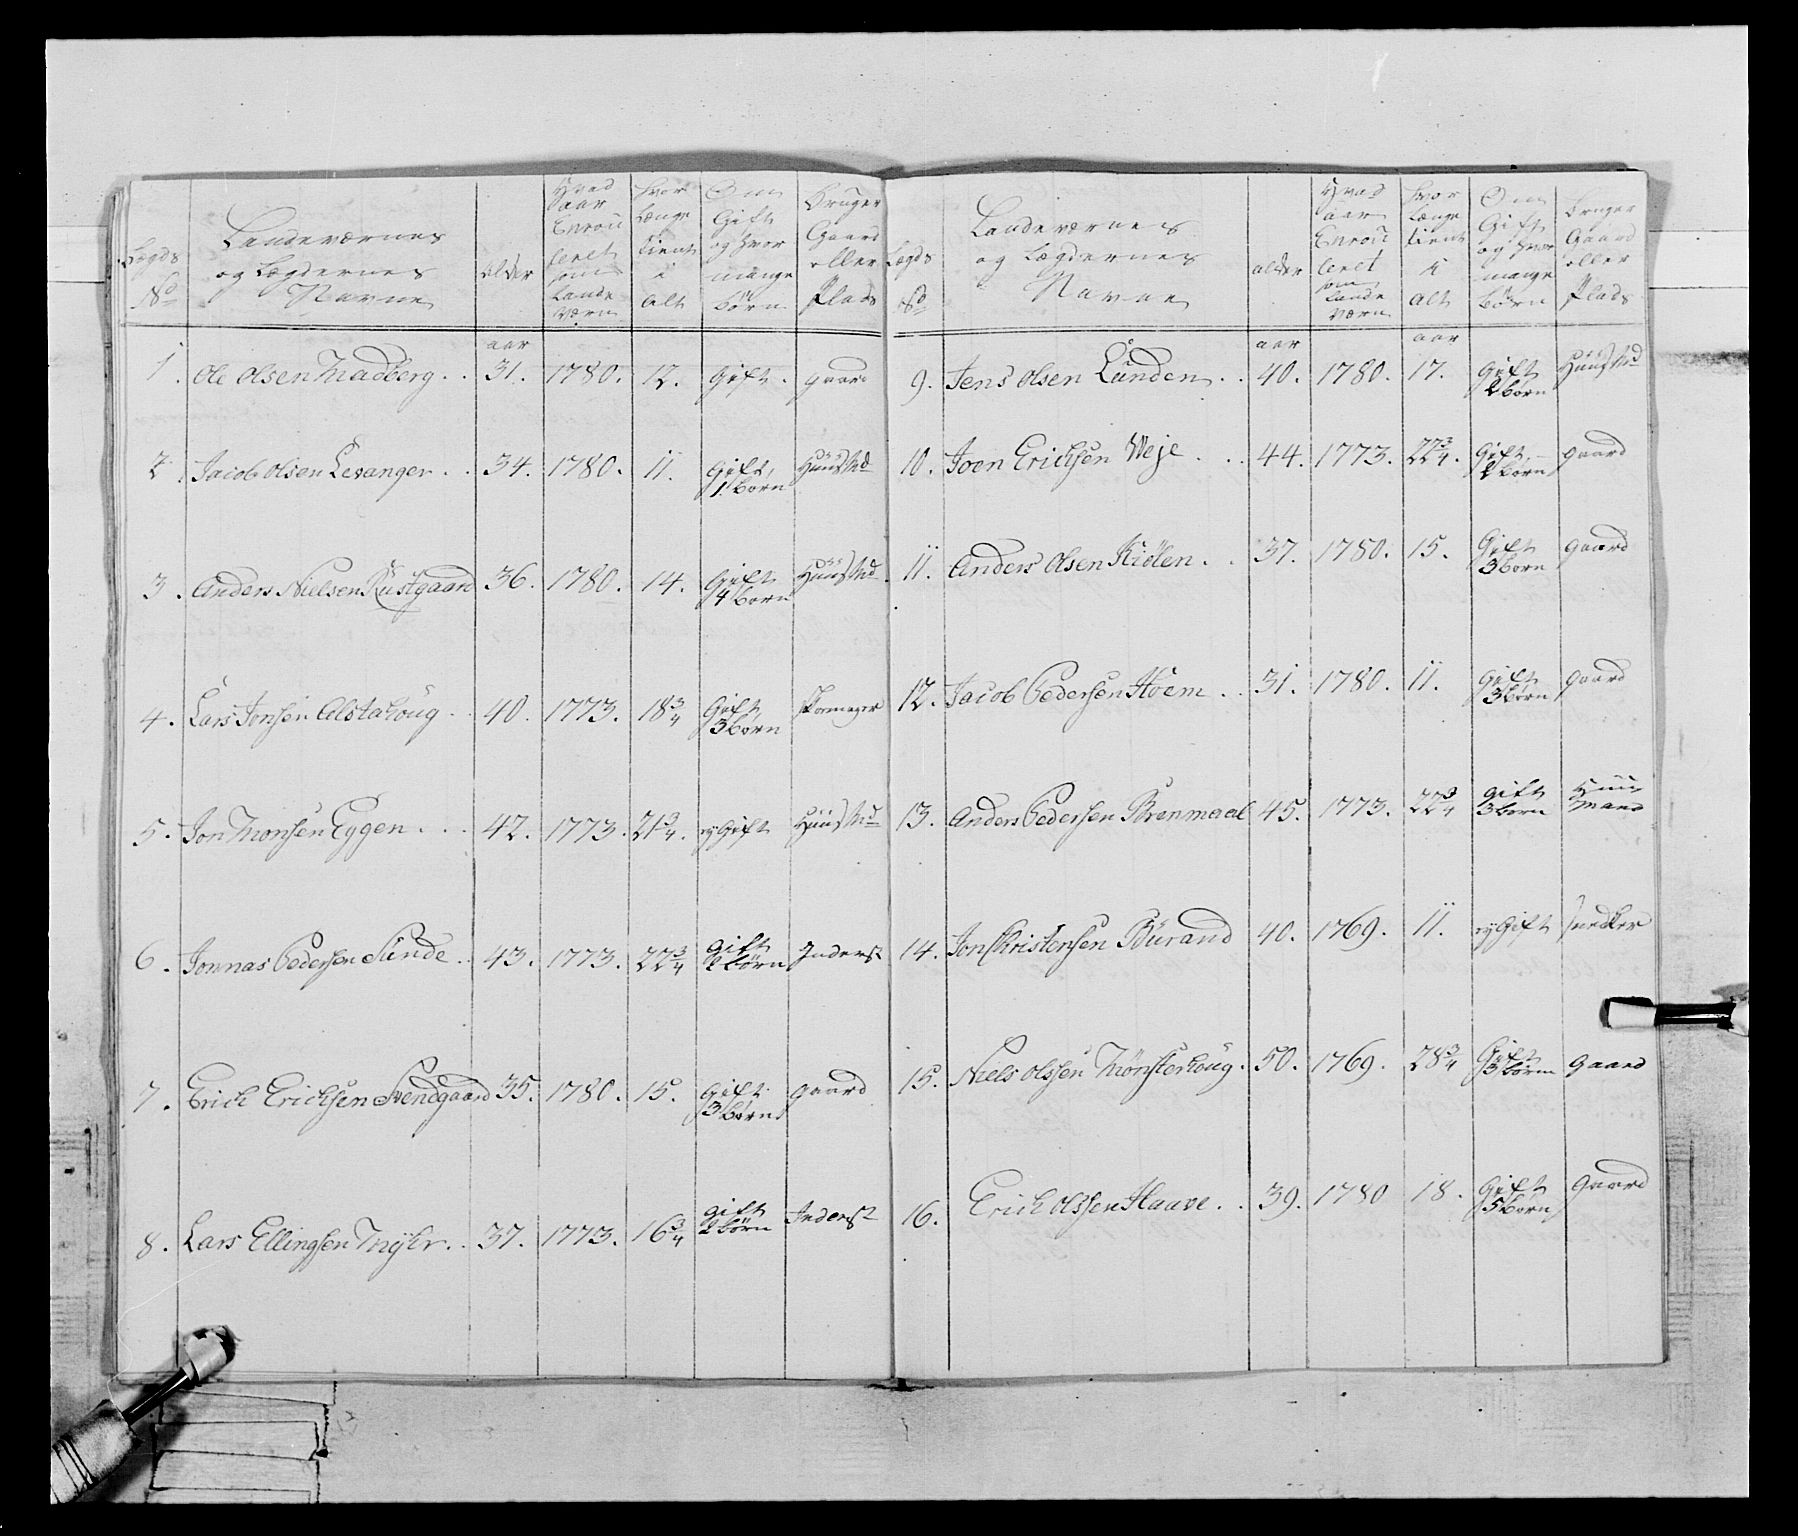 Lægds No
Landeværnes og Lægdernes Navne
alder
Hvad aar Enroulleret som Lande værn
Hvor Længe tient i alt
Om Gift og hvor mange børn
Bruger Gaard eller Plads
aar
1. Ole Olsen Madberg . . 31. 1780. 12. Gift. gaard
2. Jacob Olsen Levanger . . 34. 1780. 11. Gift, 1 børn Huusmd
3. Anders Nielsen Rustgaard 36. 1780. 14. Gift 4 børn Huusmd
4. Lars Jonsen Alstahoug . . 40. 1773. 18 3/4 Gift 3 børn skomager
5. Jon Thomsen Eggen . . . 42. 1773. 21 3/4. ej Gift Huusmd
6. Jonnas Pedersen Sunde . . 43. 1773. 22 3/4 gift 2 børn Inderst
7. Erich Erichsen Svendgaard 35. 1780. 15. Gift 3 børn gaard
8. Lars Ellingsen Myhr . . 37. 1773. 16 3/4 gift 2 børn Inderst
Lægds No
Landeværnes og Lægdernes Navne
alder
Hvad aar Enroulleret som Lande værn
Hvor Længe tient i alt
Om Gift og hvor mange børn
Bruger Gaard eller Plads
aar aar
9. Jens Olsen Lunden . . 40. 1780. 17. Gift 2 børn Huusmd
10. Joen Erichsen Weje . . . 44. 1773. 22 3/4. Gift. 2 børn gaard
11. Anders Olsen Kiølen . . 37. 1780. 15. Gift 3 børn gaard
12. Jacob Pedersen Hoem . . 31. 1780. 11. Gift 3 børn gaard
13. Anders Pedersen Brenmaal 45. 1773. 22 3/4 gift 3 børn Huusmand
14. Jon Christensen Burand 40. 1769. 11. ej Gift snedker
15. Niels Olssen Mønsterhoug . 50. 1769. 28 3/4 Gift 3 børn gaard
16. Erich Olssen Haave . . 39. 1780 18. Gift 5 børn Gaard